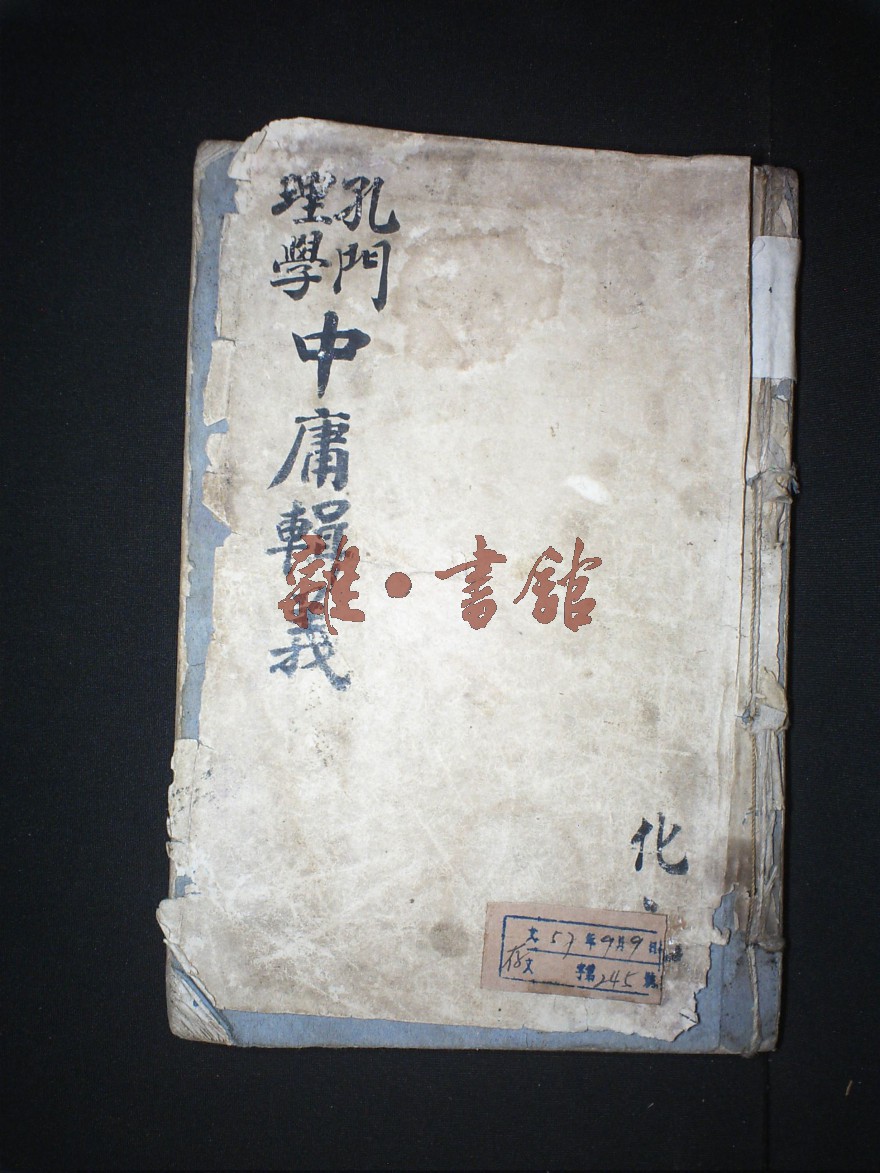 孔門
理學
中庸輯義
雜·書館
化
文 57年9月9日
存文 字第245號